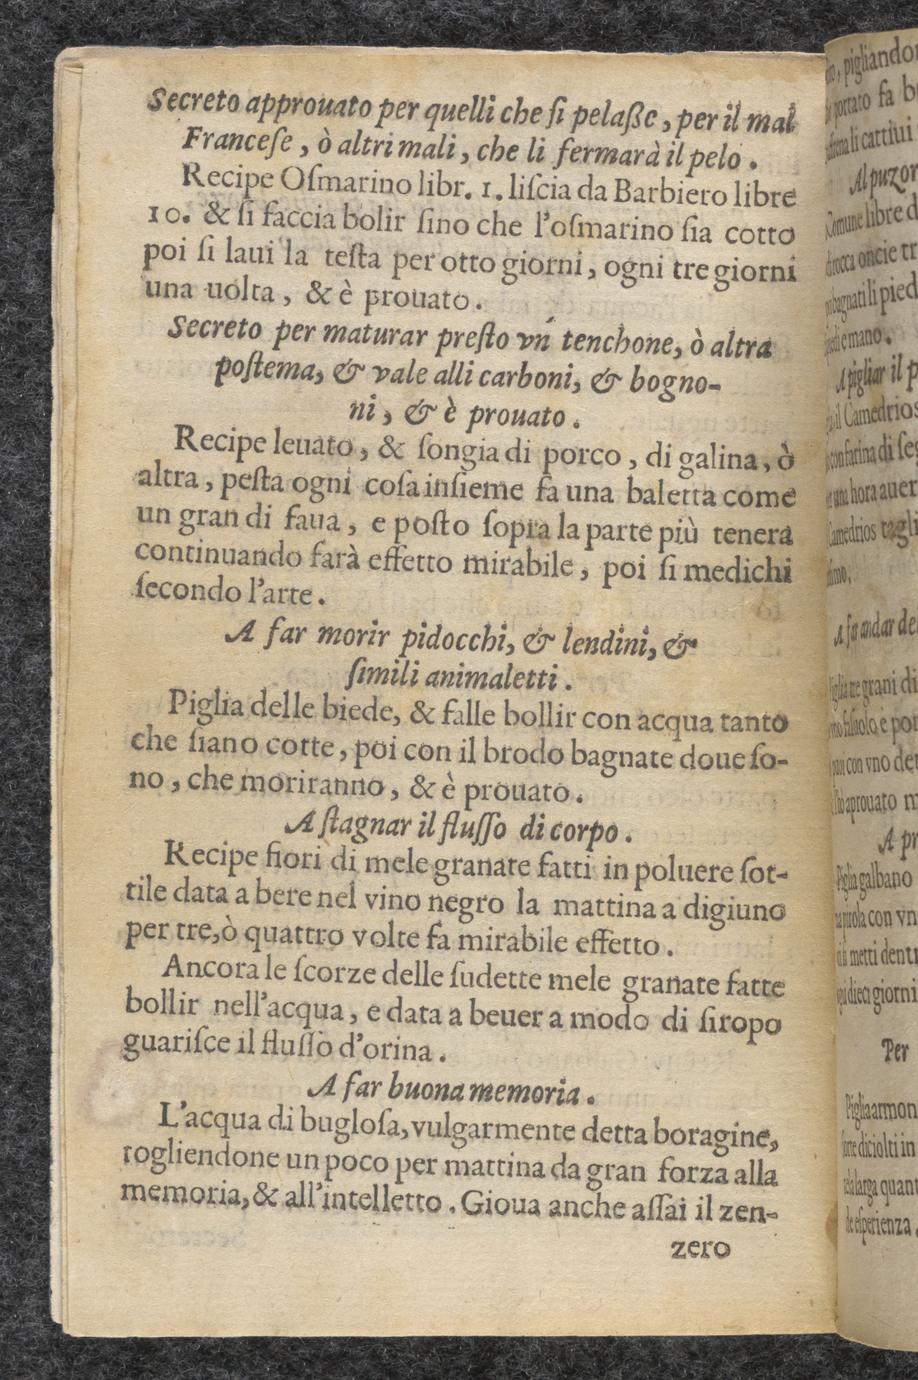 Secreto approuato per quelli che ſi pelaße, per il mal
Franceſe, ò altri mali, che li fermarà il pelo.
Recipe Oſmarino libr. 1. liſcia da Barbiero libre
10. & ſi faccia bolir ſino che l'oſmarino ſia cotto
poi ſi laui la teſta per otto giorni, ogni tre giorni
una uolta, & è prouato.
Secreto per maturar preſto vń tenchone, ò altra
poſtema, & vale alli carboni, & bogno-
ni, & è prouato.
Recipe leuato, & ſongia di porco, di galina, ò
altra, peſta ogni coſa inſieme fa una baletta come
un gran di faua, e poſto ſopra la parte più tenera
continuando farà effetto mirabile, poi ſi medichi
ſecondo l'arte.
A far morir pidocchi, & lendini, &
ſimili animaletti.
Piglia delle biede, & falle bollir con acqua tanto
che ſiano cotte, poi con il brodo bagnate doue ſo-
no, che moriranno, & è prouato.
A ſtagnar il fluſſo di corpo.
Recipe fiori di mele granate fatti in poluere ſot-
tile data a bere nel vino negro la mattina a digiuno
per tre, ò quattro volte fa mirabile effetto.
Ancora le ſcorze delle ſudette mele granate fatte
bollir nell'acqua, e data a beuer a modo di ſiropo
guariſce il fluſſo d'orina.
A far buona memoria.
L'acqua di bugloſa, vulgarmente detta boragine,
togliendone un poco per mattina da gran forza alla
memoria, & all'intelletto. Gioua anche aſſai il zen-
zero
pigliando
portato fa
li cattiui
Al puzor
Comune libre d
rocca oncie tr
bagnati li pied
e mano.
A pigliar il p
il Camedrios
con farina di ſeg
una hora auer
Camedrios tagli
A far andar de
tre grani di
con vno de
aprouato
A pr
Piglia galbano
con vn
metti dentr
dieci giorni
Per
Piglia armon
diciolti in
larga quant
eſperienza.